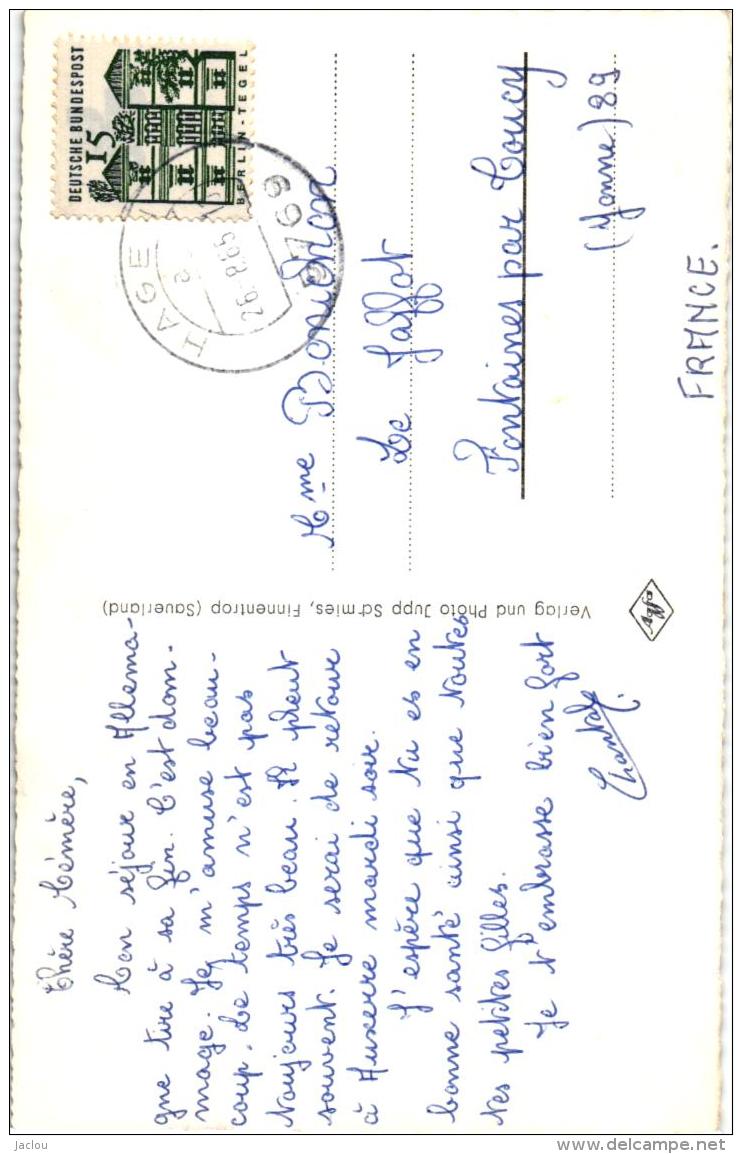 Chère Mémère,
Mon séjour en Allema-
gne tire à sa fin. C'est dom-
mage. Je m'amuse beau-
coup. Le temps n'est pas
toujours très beau. Il pleut
souvent. Je serai de retour
à Auxerre mardi soir.
J'espère que tu es en
bonne santé ainsi que toutes
tes petites filles.
Je t'embrasse bien fort
Chantal.
Verlag und Photo Jupp Schmies, Finnentrop (Sauerland)
Agfa
DEUTSCHE BUNDESPOST
15
BERLIN-TEGEL
HAGE
26.8.65
5769
Mme Bonichon
Le Jaffot
Fontaines par Toucy
(Yonne) 89
FRANCE.
jaclou
www.delcampe.net